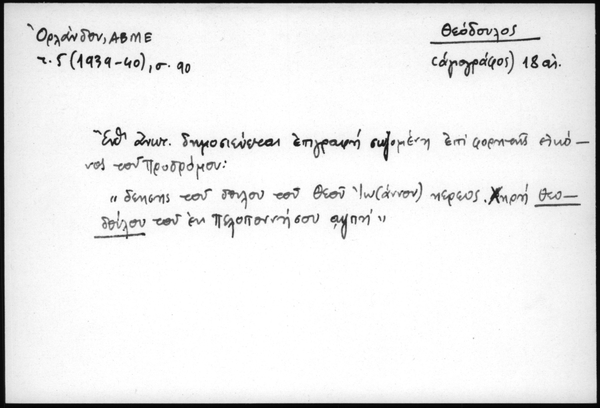 Ὀρλάνδου, ΑΒΜΕ
τ. 5 (1939-40), σ. 90
Θεόδουλος
(ἁγιογράφος) 18 αἰ.
Ἔνθ' ἀνωτ. δημοσιεύεται ἐπιγραφή σωζομένη ἐπί φορητῆς εἰκό-
νος τοῦ Προδρόμου:
„ δεησης τοῦ δουλου τοῦ Θεοῦ Ἰω(άννου) ηερεως.
Θεο-
δούλου τοῦ ἐκ Πελοποννήσου "